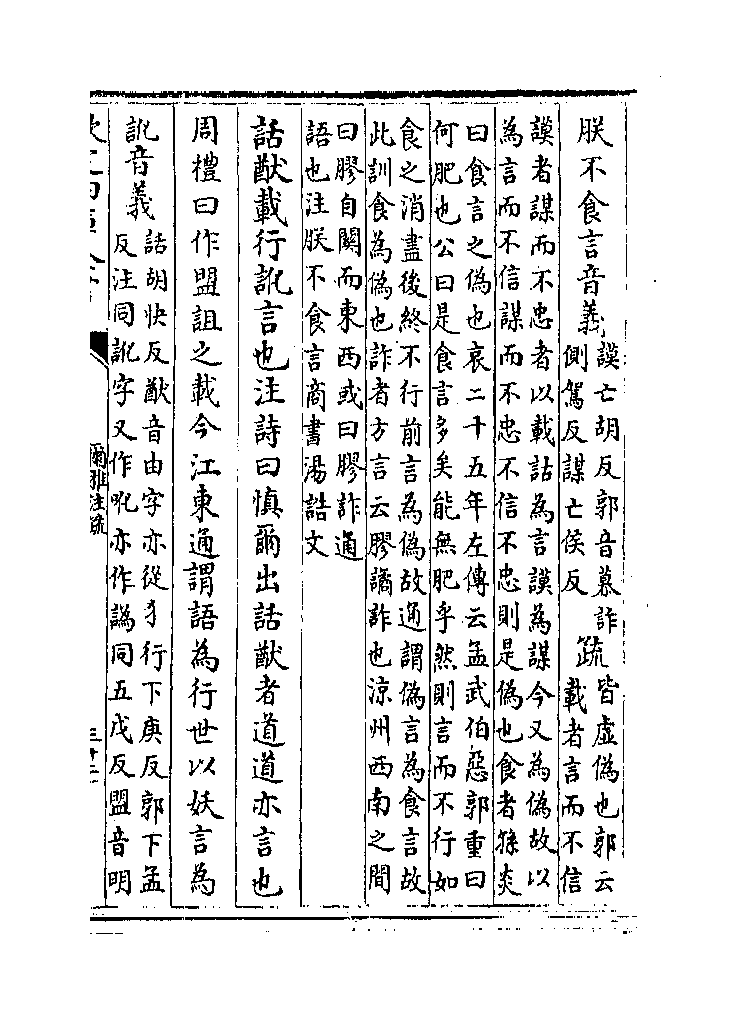 朕不食言音義謨亡胡反郭音慕詐
側駕反謀亡侯反疏皆虛偽也郭云
載者言而不信
謨者謀而不忠者以載詁為言謨為謀今又為偽故以
為言而不信謀而不忠不信不忠則是偽也食者孫炎
曰食言之偽也哀二十五年左傳云孟武伯惡郭重曰
何肥也公曰是食言多矣能無肥乎然則言而不行如
食之消盡後終不行前言為偽故通謂偽言為食言故
此訓食為偽也詐者方言云膠譎詐也涼州西南之間
曰膠自關而東西或曰膠詐通
語也注朕不食言商書湯誥文
話猷載行訛言也注詩曰慎爾出話猷者道道亦言也
周禮曰作盟詛之載今江東通謂語為行世以妖言為
訛音義話胡快反猷音由字亦從犭行下庚反郭下孟
反注同訛字又作吪亦作譌同五戈反盟音明
爾雅注疏